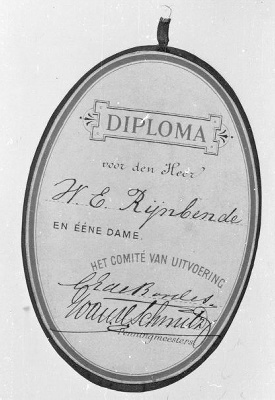 DIPLOMA
voor den Heer
W. E. Rijnbende
EN ÉÉNE DAME.
HET COMITÉ VAN UITVOERING
Penningmeesters